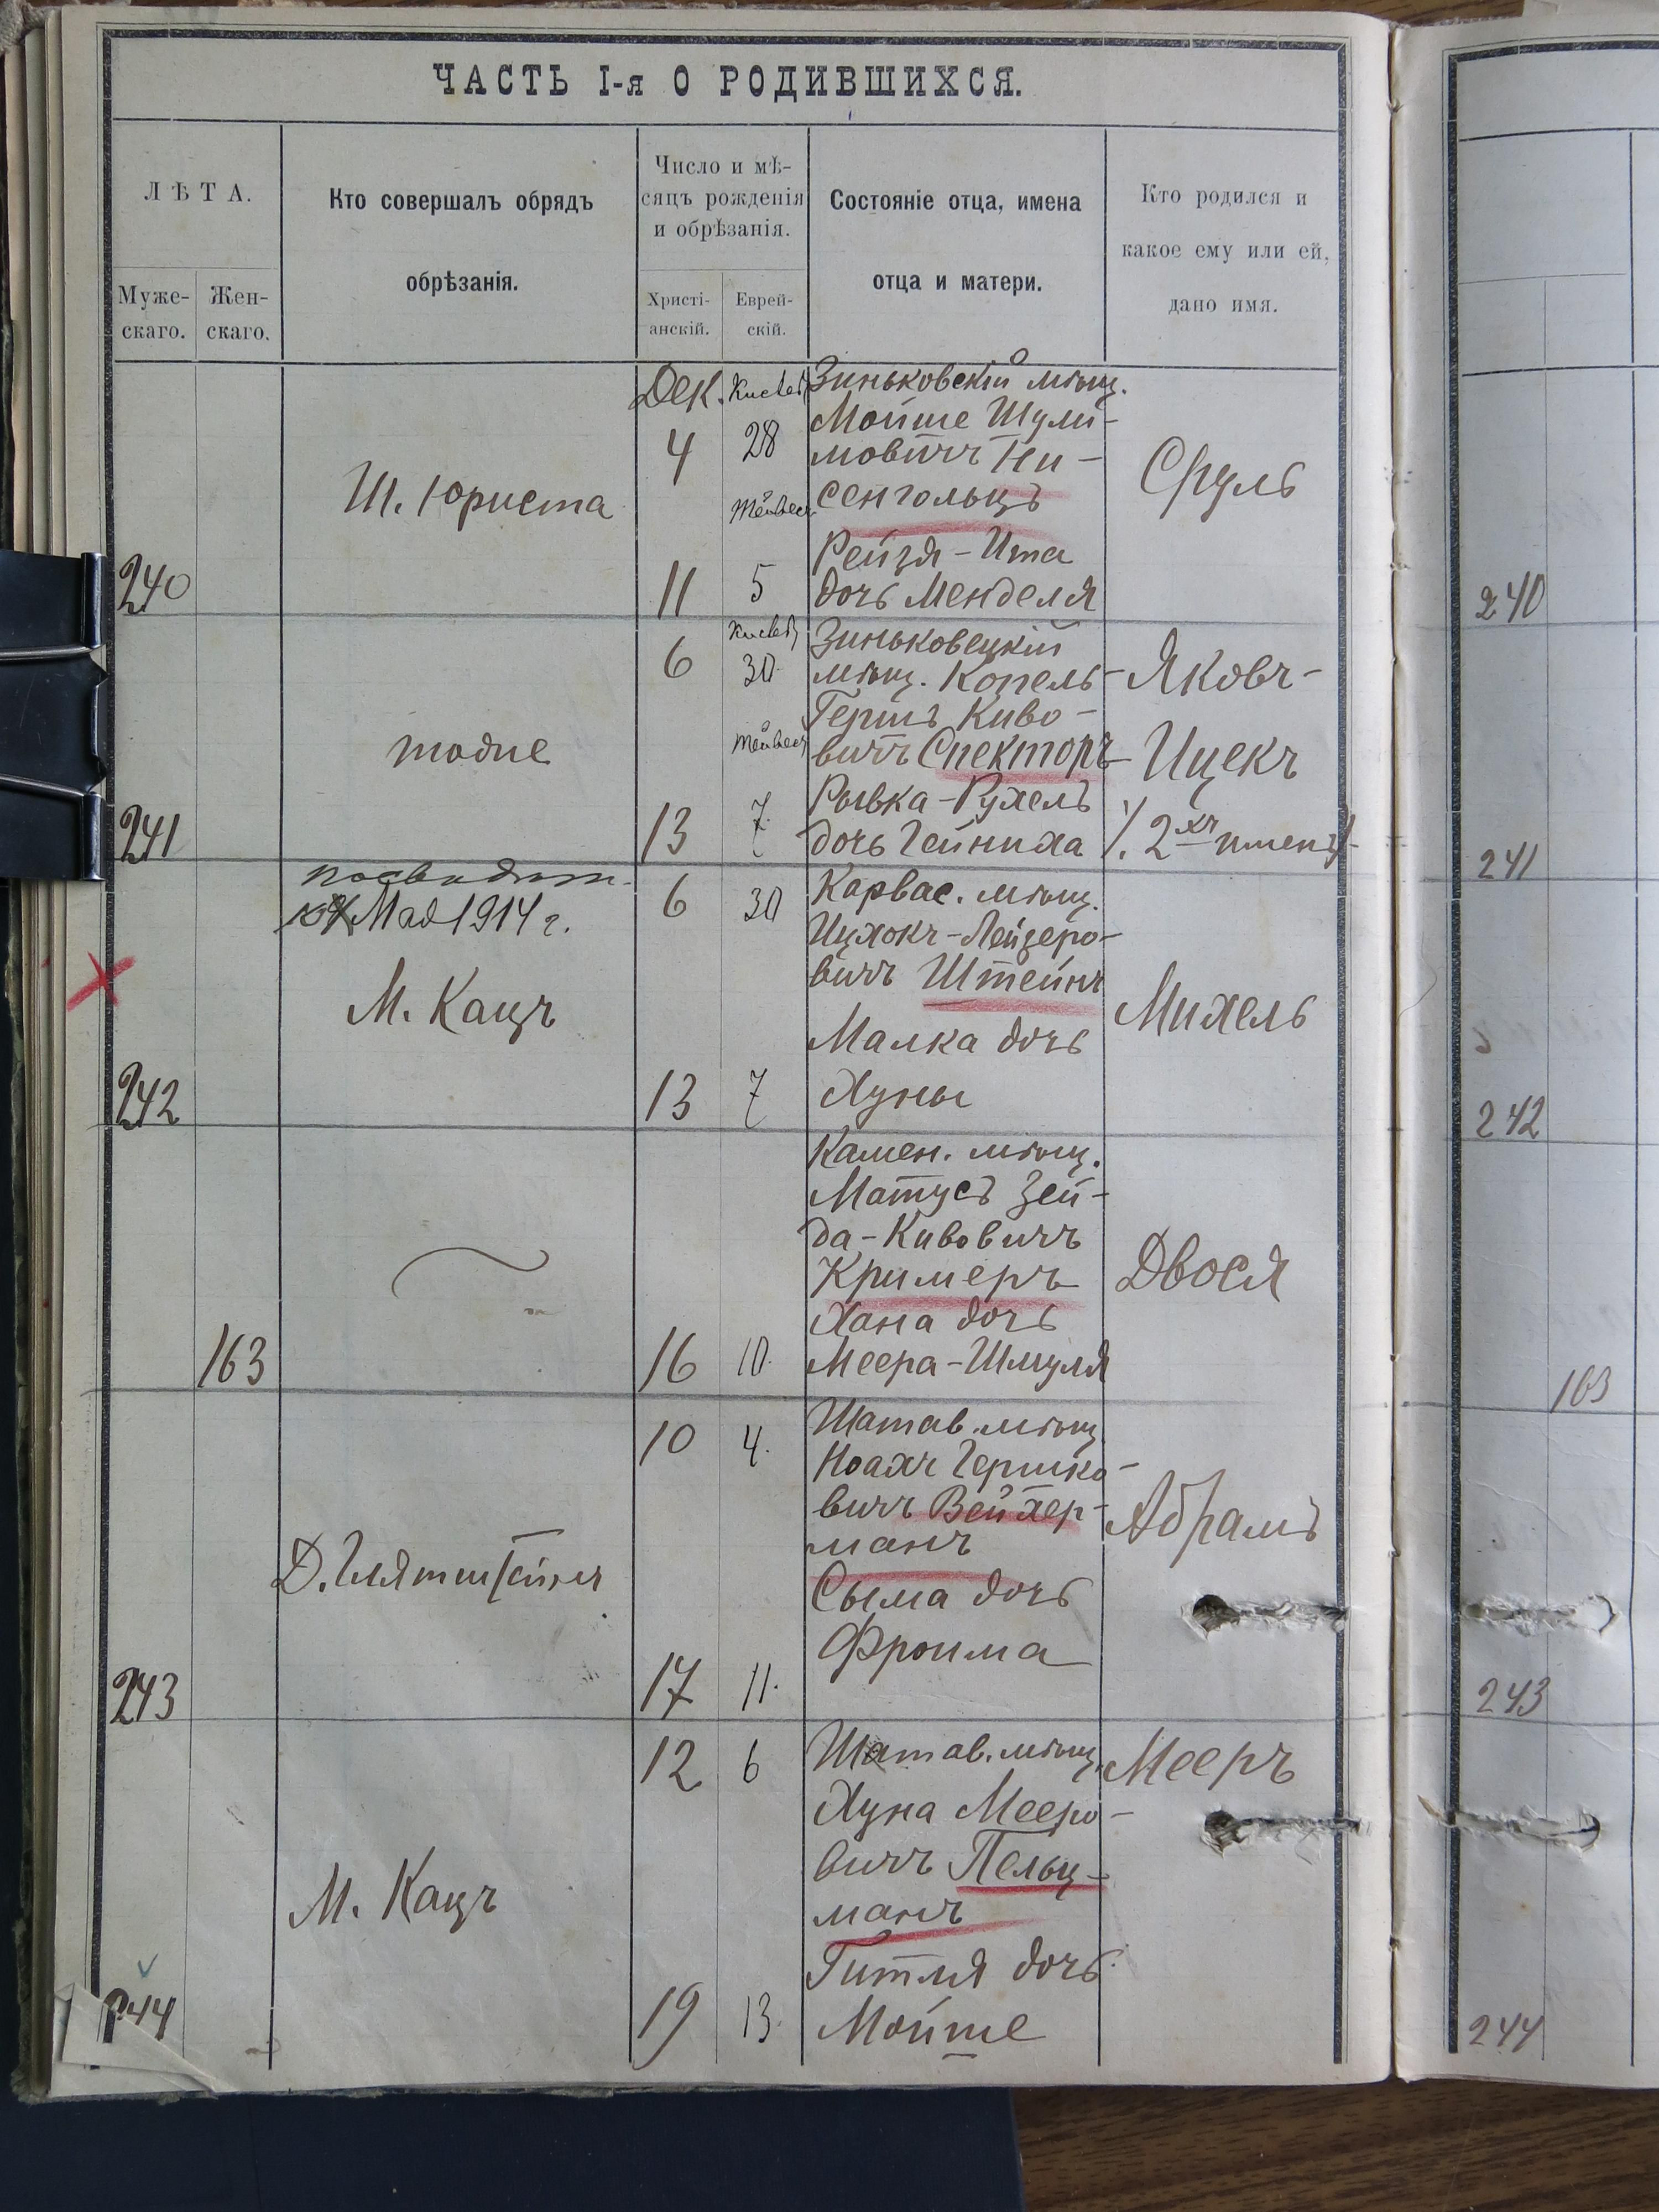 ЧАСТЬ I-я О РОДИВШИХСЯ.
ЛѢТА.
Муже-
скаго.
Жен-
скаго.
Кто совершалъ обрядъ
обрѣзанія.
Число и мѣ-
сяцъ рожденія
и обрѣзанія.
Христі-
анскій.
Еврей-
скій.
Состояніе отца, имена
отца и матери.
Кто родился и
какое ему или ей,
дано имя.
240
Ш. Юриста
Дек.
4
11
28
5
Зиньковскій мѣщ.
Мойше Шули-
мовичъ Ни-
сенгольцъ
Рейзя-Ита
дочь Менделя
Сруль
240
241
тоже
6
13
30
7
Зиньковецкій
мѣщ. Копель-
Гершъ Киво-
вичъ Спекторъ
Рывка-Рухель
дочь Гейниха
Яковъ-
Ицекъ
/. 2хъ именъ/
241
242
Мая 1914 г.
М. Кацъ
6
13
30
7
Карвас. мѣщ.
Ицхокъ-Лейзеро-
вичъ Штейнъ
Малка дочь
Хуны
Михель
242
163
16
10
Камен. мѣщ.
Матусъ Зей-
да-Кивовичъ
Кримеръ
Хана дочь
Меера-Шмуля
Двося
163
243
Д. Глятштейнъ
10
17
4
11
Шатав. мѣщ.
Ноахъ Гершко-
вичъ Вейхер-
манъ
Сыма дочь
Фроима
Абрамъ
243
244
М. Кацъ
12
19
6
13
Шатав. мѣщ.
Хуна Мееро-
вичъ Пельц-
манъ
Гитля дочь
Мойше
Мееръ
244